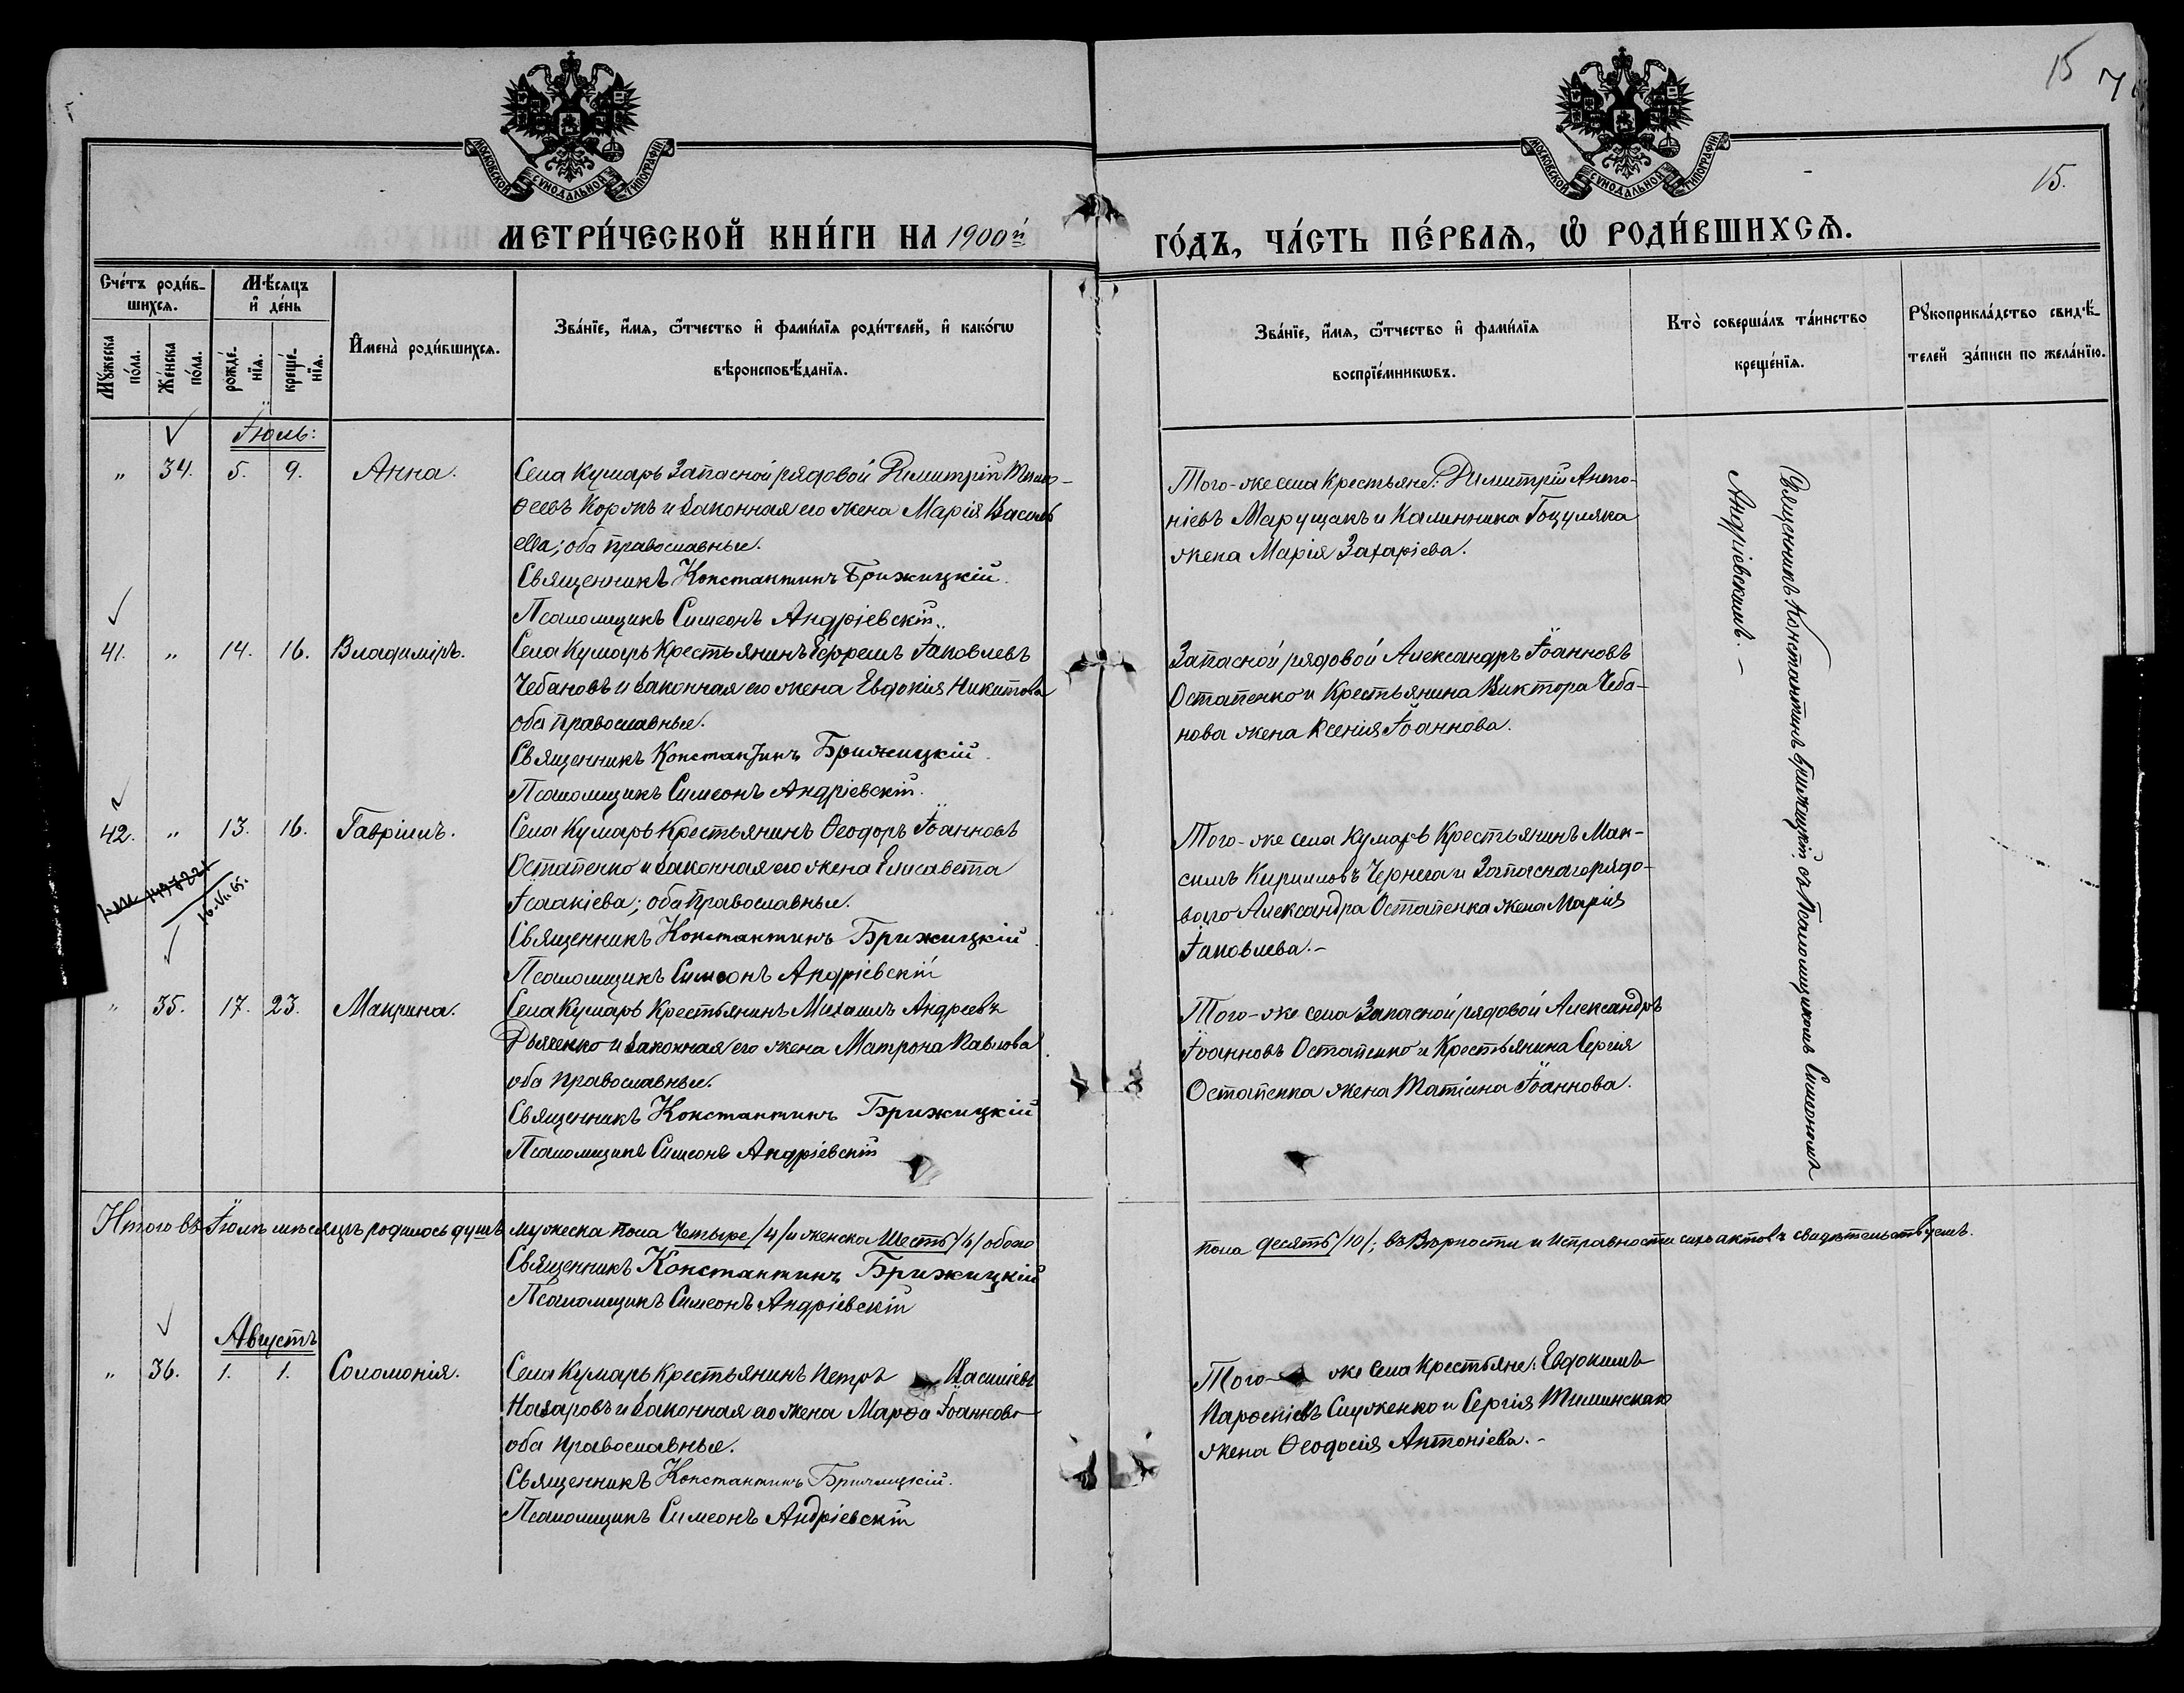 15
15.
МОСКОВСКОЙ СѴНОДАЛЬНОЙ ТИПОГРАФІИ
МОСКОВСКОЙ СѴНОДАЛЬНОЙ ТИПОГРАФІИ
МЕТРИ́ЧЕСКОЙ КНИ́ГИ НА 1900й
ГО́ДЪ, ЧА́СТЬ ПЕ́РВАѦ, Ѡ҆ РОДИ́ВШИХСѦ.
Сче́тъ роди́в-
шихсѧ.
Мꙋ́жеска по́ла.
Же́нска по́ла.
Мѣ́сѧцъ
и҆ де́нь
рожде́-нїѧ.
креще́-нїѧ.
И҆мена̀ роди́вшихсѧ.
Зва́нїе, и҆́мѧ, ѻ҆́тчество и҆ фами́лїѧ роди́телей, и҆ како́гѡ
вѣроисповѣ́данїѧ.
Зва́нїе, и҆́мѧ, ѻ҆́тчество и҆ фами́лїѧ
воспрїе́мникѡвъ.
Кто̀ соверша́лъ та́инство
креще́нїѧ.
Рꙋкоприкла́дство свидѣ́-
телей за́писи по жела́нїю.
Іюль:
" 34. 5. 9. Анна.
Села Кумаръ Запасной рядовой Димитрій Тимо-
ѳеевъ Коржъ и законная его жена Марія Василь
ева; оба православные.
Священникъ Константинъ Брижицкій.
Псаломщикъ Симеонъ Андріевскій.
Того-же села Крестьяне: Димитрій Анто-
ніевъ Марущакъ и Калинника Гоцуляка
жена Марія Захаріева.
41. " 14. 16. Владиміръ.
Села Кумаръ Крестьянинъ Ефремъ Іаковлевъ
Чебановъ и законная его жена Евдокія Никитова
оба православные.
Священникъ Константинъ Брижицкій.
Псаломщикъ Симеонъ Андріевскій.
Запасной рядовой Александръ Іоанновъ
Остапенко и Крестьянина Виктора Чеба-
нова жена Ксенія Іоаннова.
42. " 13. 16. Гавріилъ.
16.VII.65.
Села Кумаръ Крестьянинъ Ѳеодоръ Іоанновъ
Остапенко и законная его жена Елисавета
Ісаакіева; оба православные.
Священникъ Константинъ Брижицкій.
Псаломщикъ Симеонъ Андріевскій
Того-же села Кумаръ Крестьянинъ Мак-
симъ Кирилловъ Чернега и Запаснаго рядо-
ваго Александра Остапенка жена Марія
Іаковлева.-
" 35. 17. 23. Макрина.
Села Кумаръ Крестьянинъ Михаилъ Андреевъ
Дьяченко и законная его жена Матрона Павлова
оба православные.
Священникъ Константинъ Брижицкій
Псаломщикъ Симеонъ Андріевскій
Того-же села Запасной рядовой Александръ
Іоанновъ Остапенко и Крестьянина Сергія
Остапенка жена Татіана Іоаннова.
Священникъ Константинъ Брижицкій съ Псаломщикомъ Симеономъ
Андріевскимъ.-
Итого въ Іюлѣ мѣсяцѣ родилось душъ мужеска пола Четыре /4/ и женска Шесть /6/ обоего
пола десять /10/; въ Вѣрности и Исправности сихъ актовъ свидѣтельствуемъ.
Священникъ Константинъ Брижицкій
Псаломщикъ Симеонъ Андріевскій
Августъ
" 36. 1. 1. Соломонія.
Села Кумаръ Крестьянинъ Петръ Василіевъ
Назаровъ и законная его жена Марѳа Іоаннова
оба православные.
Священникъ Константинъ Брижицкій.
Псаломщикъ Симеонъ Андріевскій
Того- же Села Крестьяне: Евдокимъ
Служенко и Сергія
жена Ѳеодосія Антоніева.-